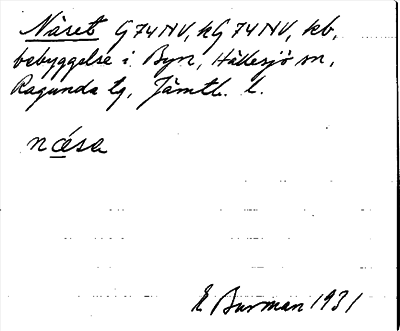 Näset G74NV, kG74NV, kb,
bebyggelse i Byn, Hällesjö sn,
Ragunda tg, Jämtl. l.
nǽsa
E Burman 1931